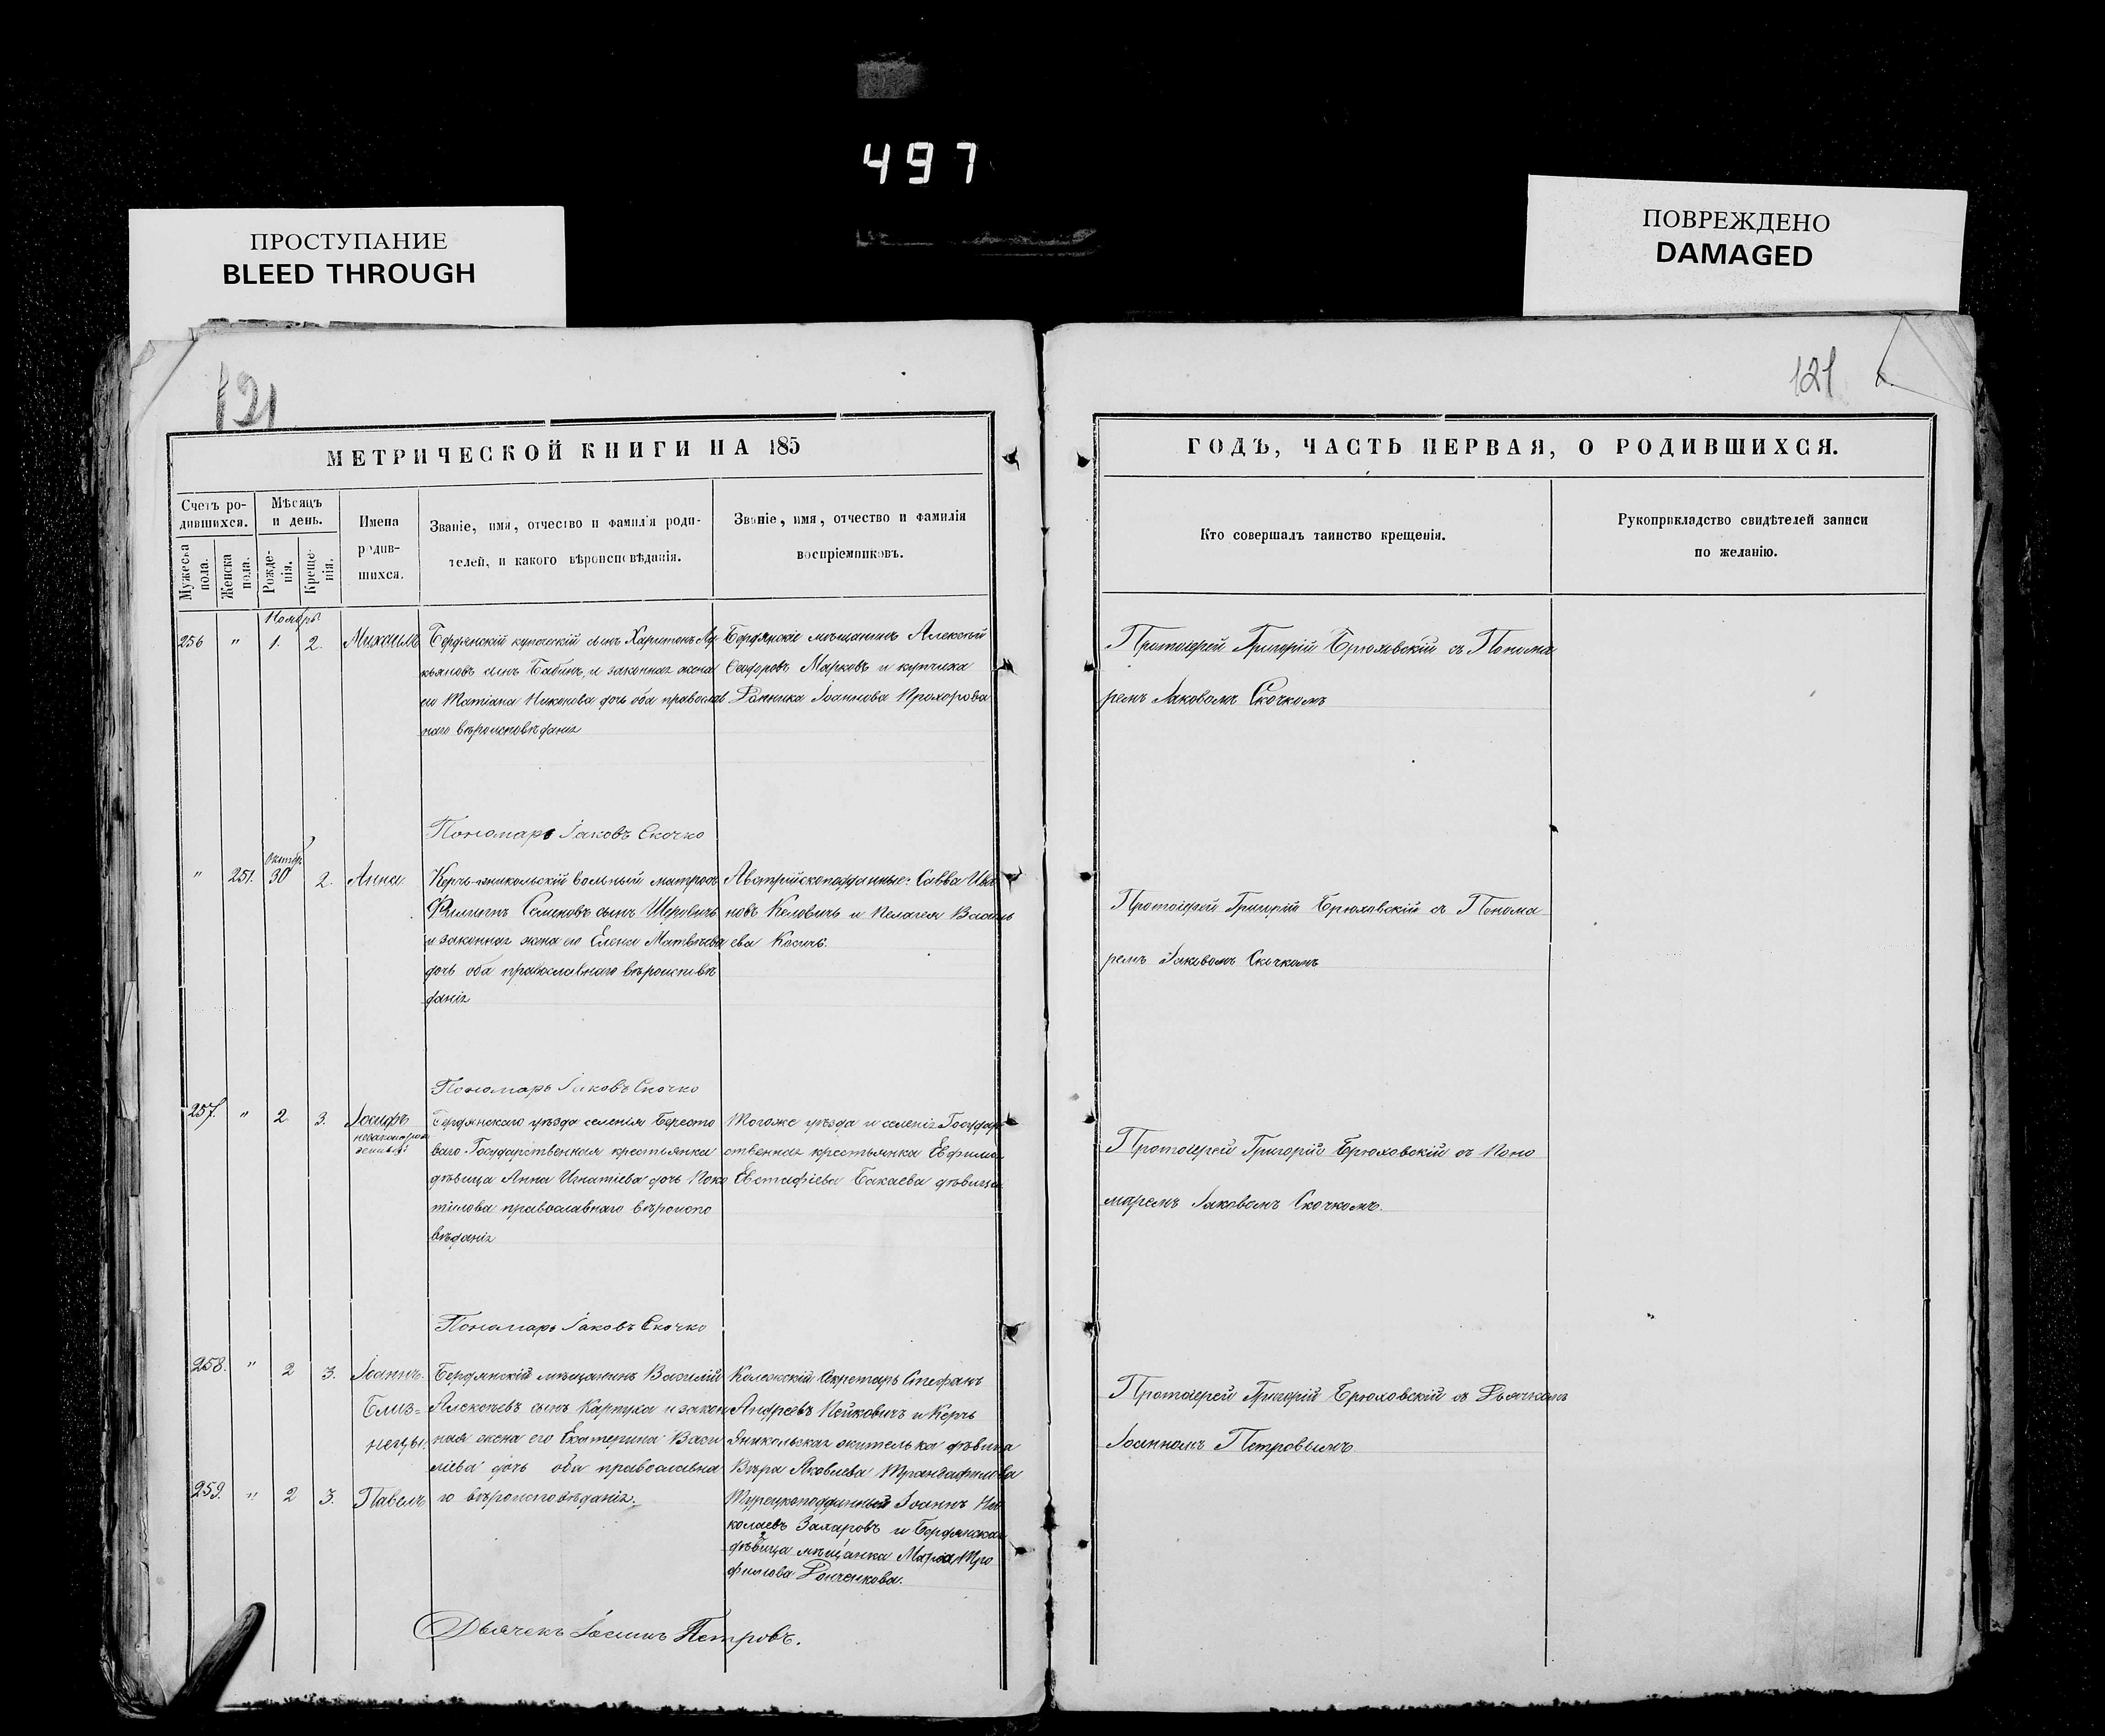 497
ПРОСТУПАНИЕ
BLEED THROUGH
ПОВРЕЖДЕНО
DAMAGED
121
121
МЕТРИЧЕСКОЙ КНИГИ НА 185
ГОДЪ, ЧАСТЬ ПЕРВАЯ, О РОДИВШИХСЯ.
Счетъ ро-
дившихся.
Мужеска
пола.
Женска
пола.
Мѣсяцъ
и день.
Рожде-
нія.
Креще-
нія.
Имена
родив-
шихся.
Званіе, имя, отчество и фамилія роди-
телей, и какого вѣроисповѣданія.
Званіе, имя, отчество и фамилія
воспріемниковъ.
Кто совершалъ таинство крещенія.
Рукоприкладство свидѣтелей записи
по желанію.
Ноябрь
256 " 1. 2. Михаилъ
Бердянскій купеческій сынъ Харитонъ Лу
кьяновъ сынъ Бабинъ, и законная жена
его Татіана Никонова дочь оба православ
наго вѣроисповѣданія
Бердянскіе мѣщанинъ Алексѣй
Ѳеодоровъ Марковъ и купчиха
Іоаннова Прохорова
Протоіерей Григорій Брюховскій съ Понома
ремъ Іаковомъ Скочкомъ
Пономарь Іаковъ Скочко
" 251. Октябр 30 2. Анна
Керчь-яникольскій вольный матросъ
Филиппъ Семеновъ сынъ
и законная жена его Елена Матвѣева
дочь оба православнаго вѣроисповѣ
данія
Австрійскоподданные: Савва Ива
новъ и Пелагея Василь
ева Косичъ.
Протоіерей Григорій Брюховскій съ Понома
ремъ Іаковомъ Скочкомъ
Пономарь Іаковъ Скочко
257. " 2 3. Іосифъ
незаконорож
денный
Бердянскаго уѣзда селенія Бересто
ваго Государственная крестьянка
дѣвица Анна Игнатіева дочь Поко
тилова православнаго вѣроиспо
вѣданія
Тогоже уѣзда и селенія Государ
ственная крестьянка Евфимія
Евстафіева Бакаева дѣвица
Протоіерей Григорій Брюховскій съ Поно
маремъ Іаковомъ Скочкомъ.
Пономарь Іаковъ Скочко
258. " 2 3. Іоаннъ.
Близ=
нецы.
Бердянскій мѣщанинъ Василій
Алексѣевъ сынъ Картуха и закон
ная жена его Екатерина Васи
ліева дочь оба православна
го вѣроисповѣданія.
Колежскій Секретарь Стефанъ
Андреевъ Пейковичъ и Керчь
яникольская жителька дѣвица
Вѣра Яковлева Трандафилова
Протоіерей Григорій Брюховскій съ Дьячкомъ
Іоанномъ Петровымъ
259. " 2 3. Павелъ
Турецкоподданный Іоаннъ Ни
колаевъ Захаровъ и Бердянская
дѣвица мѣщанка Марія Тро
фимова Донченкова.
Дьячекъ Іоаннъ Петровъ.